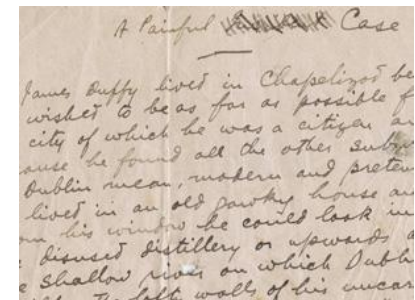 A Painful Case
James Duffy lived in Chapelizod be
wished to be as far as possible f
city of which he was a citizen an
ause he found all the other subur
Dublin mean, modern and preten
lived in an old gawky house an
om his window he could look in
disused distillery or upwards a
e shallow river on which Dubli
The lofty walls of his uncar